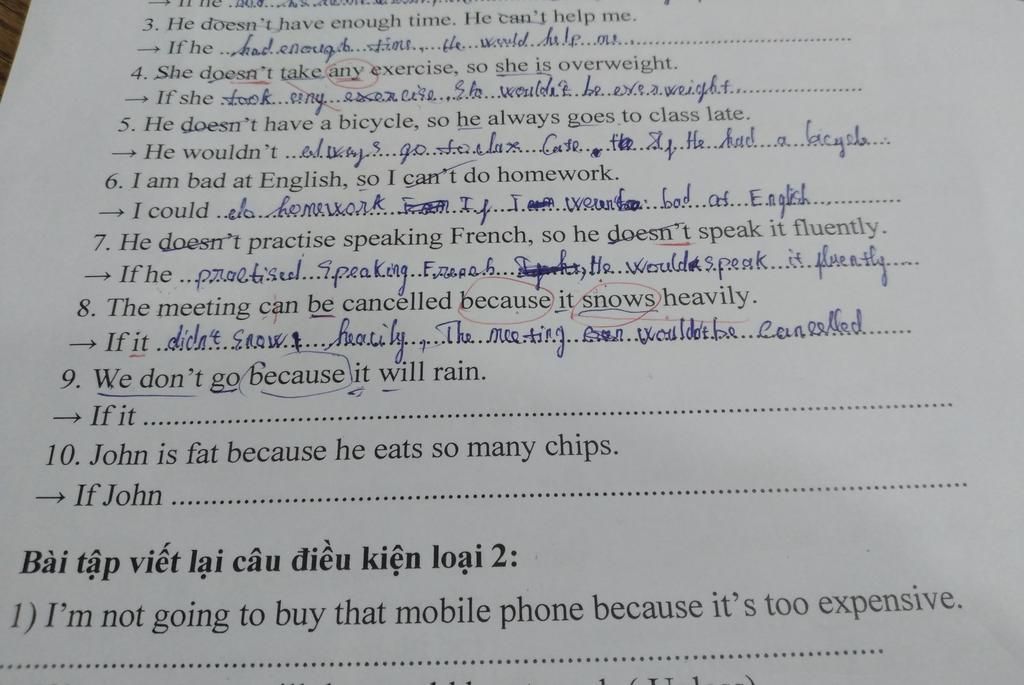 3. He doesn't have enough time. He can't help me.
→ If he had enough time, He would help me
4. She doesn't take any exercise, so she is overweight.
→ If she took any exercise, She wouldn't be overweight
5. He doesn't have a bicycle, so he always goes to class late.
→ He wouldn't always go to class late If He had a bicycle
6. I am bad at English, so I can't do homework.
→ I could do homework If I weren't bad at English
7. He doesn't practise speaking French, so he doesn't speak it fluently.
→ If he practised Speaking French, He would speak it fluently
8. The meeting can be cancelled because it snows heavily.
→ If it didn't snow heavily, The meeting wouldn't be cancelled
9. We don't go because it will rain.
→ If it
10. John is fat because he eats so many chips.
→ If John
Bài tập viết lại câu điều kiện loại 2:
1) I'm not going to buy that mobile phone because it's too expensive.